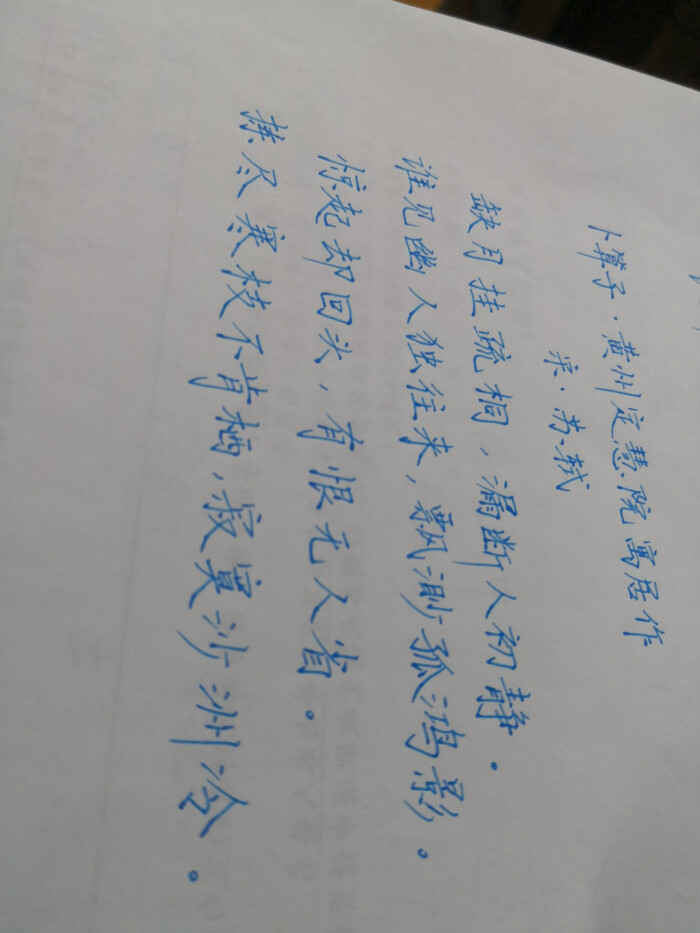 卜算子·黄州定慧院寓居作
宋·苏轼
缺月挂疏桐，漏断人初静。
谁见幽人独往来，飘渺孤鸿影。
惊起却回头，有恨无人省。
拣尽寒枝不肯栖，寂寞沙洲冷。